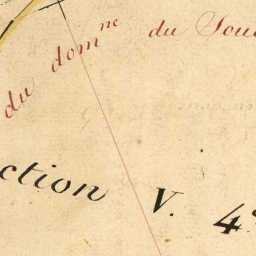 du domne du Sou
ction V. 4e